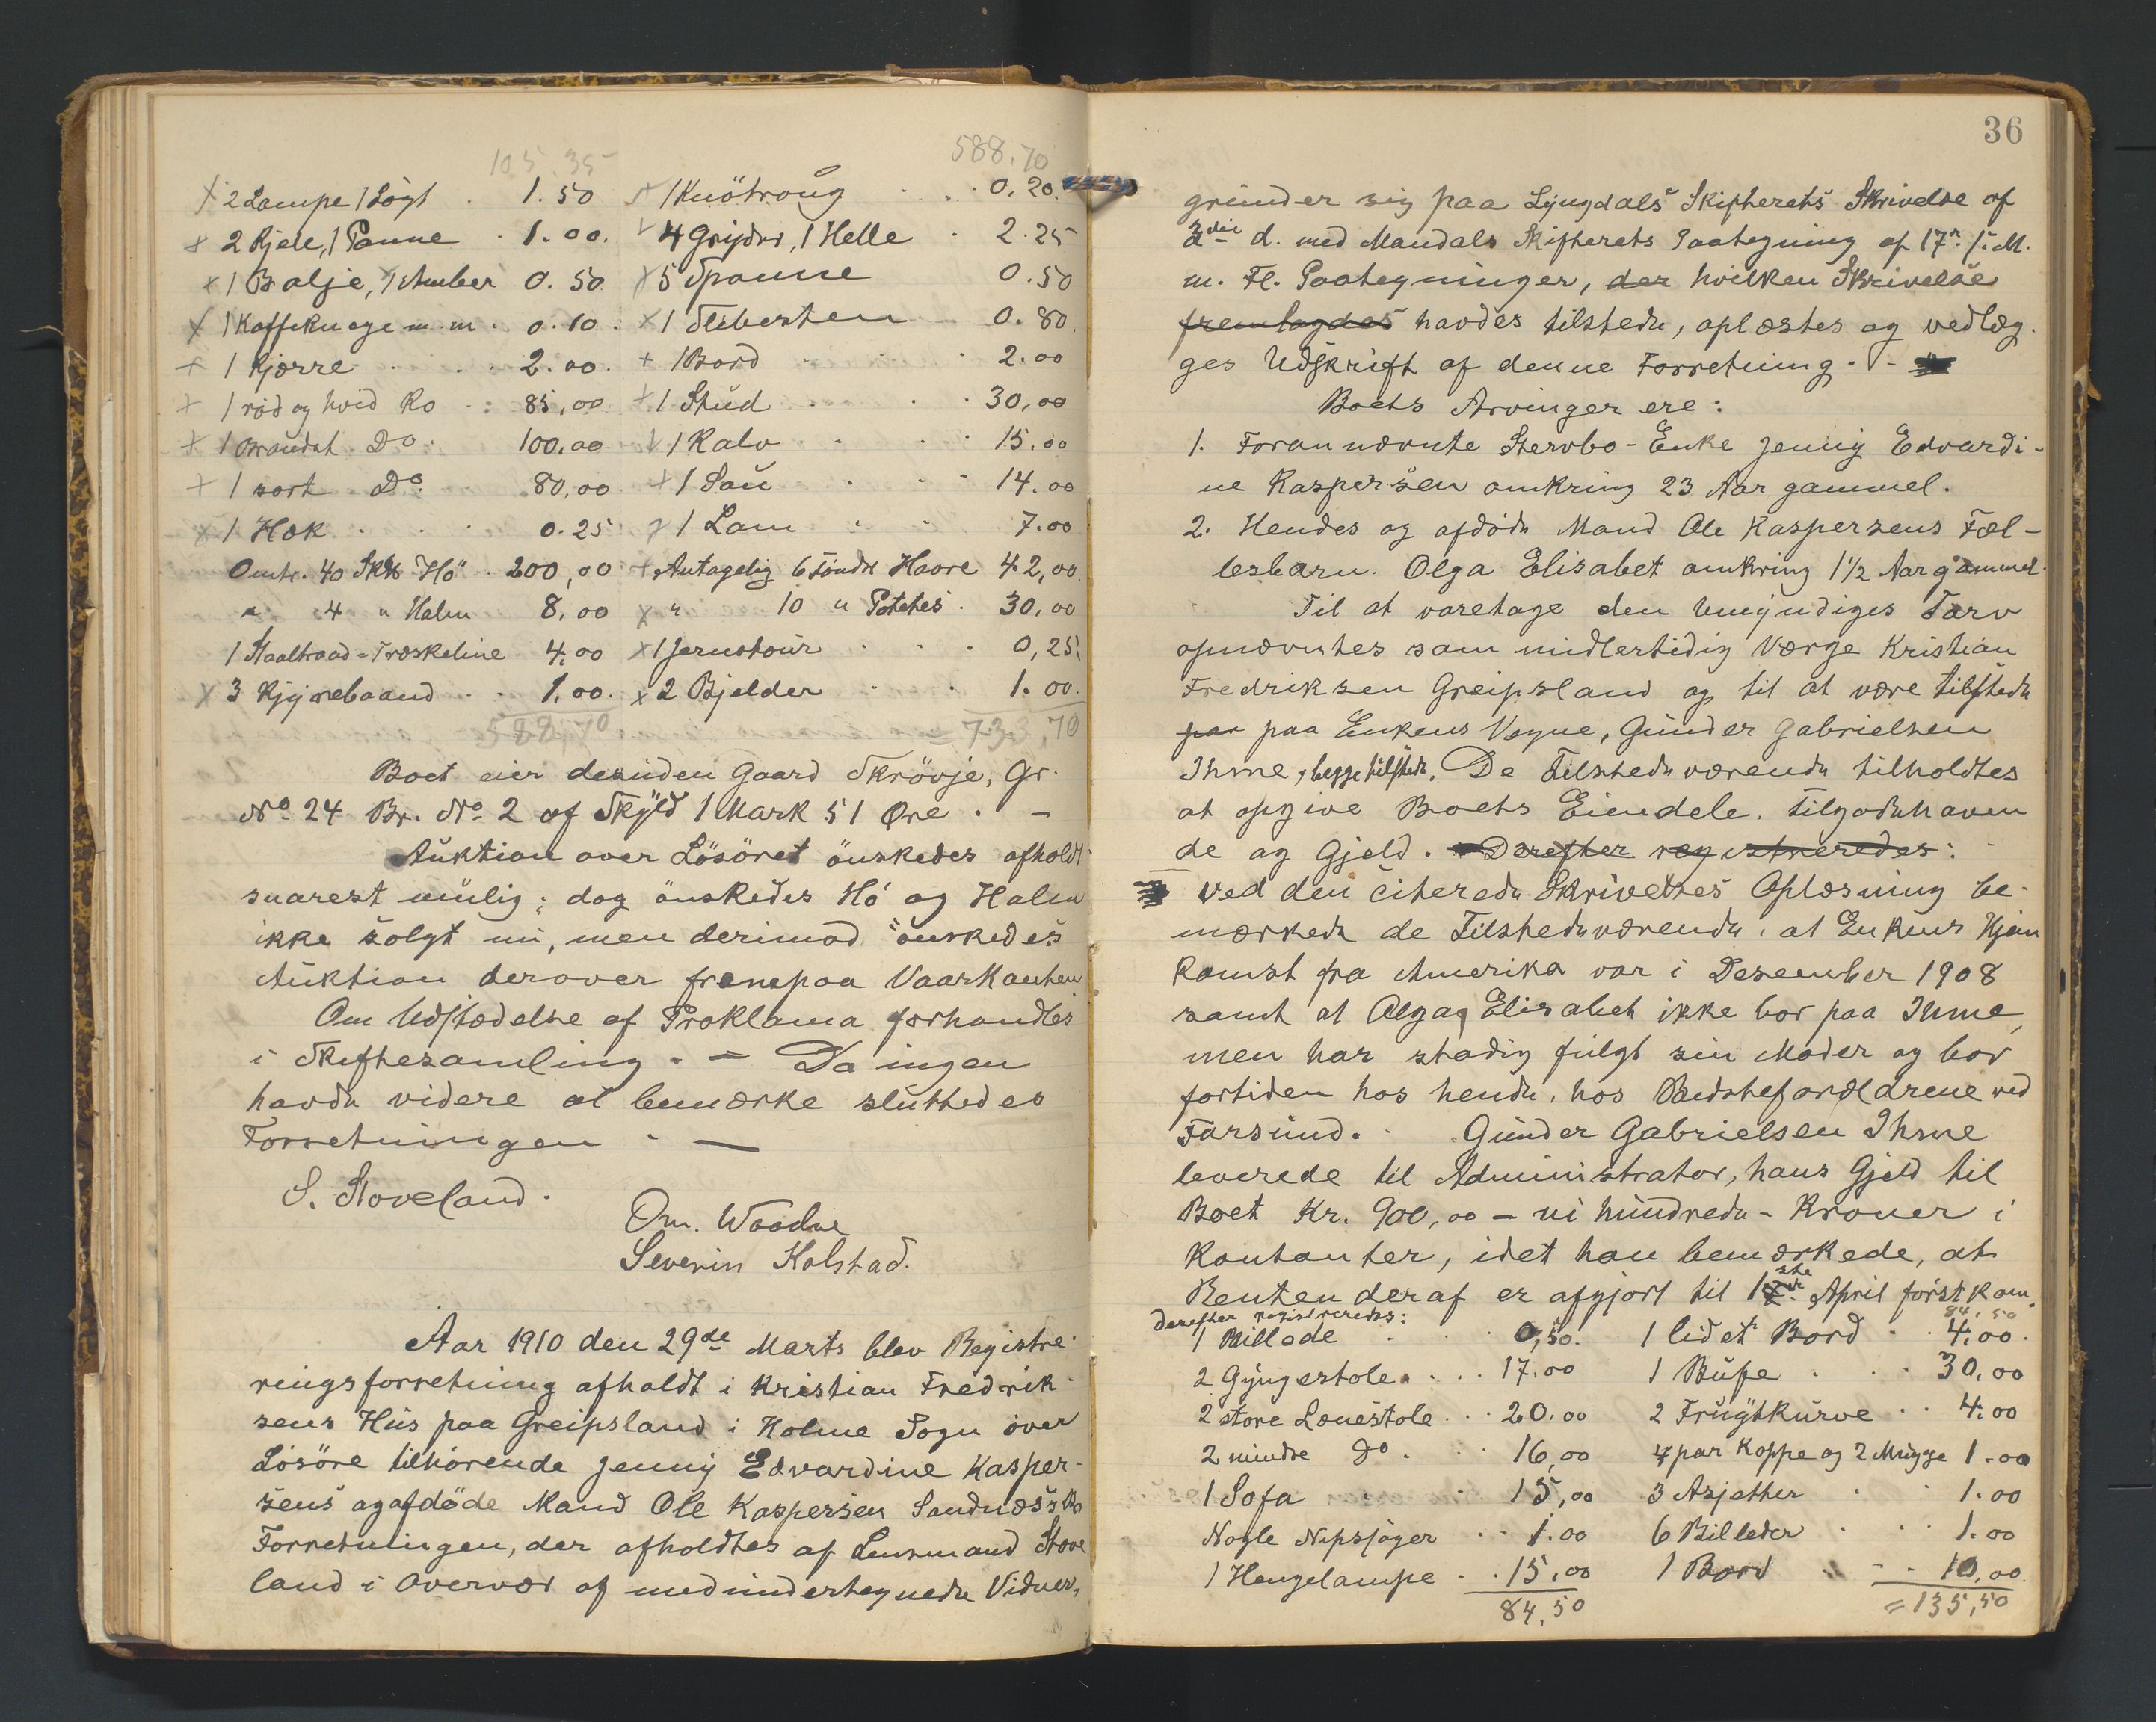 105,35
588,70
2 Lampe 1 Løgt 1.50
2 Kjele, 1 Panne 1.00.
1 Balje, 1 Amber 0.50
1 Kaffekværn m.m. 0.10.
1 Kjærre 2.00.
1 rød og hvid Ko 85,00
1 Brandet Do 100.00
1 sort Do. 80,00
1 Hæk 0.25
Omtr. 40 Høˮ 200,00
" 4 " Halm 8,00
1 Staaltraad-Træskeline 4.00
3 1.00.
588,70
1 Knötroug 0.20.
4 Grijder, 1 Helle 2.25
5 Spanne 0.50
1 Slibesten 0.80.
1 Bord 2.00
1 Stud 30,00
1 Kalv 15.00
1 Sau 14.00
1 Lam 7.00
Antagelig 6 Tönder Havre 42,00.
" 10 " Potetes 30,00
1 Jernstour 0,25.
2 Bjelder 1.00.
= 733,70
Boet eier desuden Gaard Skrövje, Gr.
No 24 Br. No 2 af Skyld 1 Mark 51 Øre. -
Auktion over Lösöret önskedes afholdt
snarest mulig; dog önskedes Hö og Halm
ikke solgt nu, men derimod önskedes
Auktion derover fremepaa Vaarkanten
Om Udstædelse af Proklama forhandles
i Skiftesamling. - Da ingen
havde videre at bemærke sluttedes
Forretningen. -
S. Stoveland.
Om. Waadne
Severin Kolstad.
Aar 1910 den 29de Marts blev Registre-
ringsforretning afholdt i Kristian Fredrik-
sens Hus paa Greipsland i Holme Sogn over
Lösöre tilhörende Jenny Edvardine Kasper-
sens og afdöde Mand Ole Kaspersen Sandnæs's Bo
Forretningen, der afholdtes af Lensmand Stove
land i Overvær af medundertegnede Vidner,
36
grunder sig paa Lyngdals Skifterets Skrivelse af
2den d. med Mandals Skifterets Paategning af 17n f. M.
m. Fl. Paategninger, der hvilken Skrivelse
fremlagdes havdes tilstede, oplæstes og vedlæg-
ges Udskrift af denne Forretning. -
Boets Arvinger ere:
1. Forannævnte Stervbo-Enke Jenny Edvardi-
ne Kaspersen omkring 23 Aar gammel.
2. Hendes og afdöde Mand Ole Kaspersens Fæl-
lesbarn. Olga Elisabet omkring 1½ Aar gammel.
Til at varetage den Umyndiges Tarv
opnævntes som midlertidig Værge Kristian
Fredriksen Greipsland og til at være tilstede
paa paa Enkens Vegne, Gunder Gabrielsen
Ihme, begge tilstede. De Tilstedeværende tilholdtes
at opgive Boets Eiendele. Tilgodehaven
de og Gjeld. Derefter registreredes:
Ved den citerede Skrivelses Oplæsning be-
mærkede de Tilstedeværende, at Enkens Hjem
komst fra Amerika var i Desember 1908
samt at Olga Elisabet ikke bor paa Ihme,
men har stadig fulgt sin Moder og bor
fortiden hos hende, hos Bedsteforældrene ved
Farsund. Gunder Gabrielsen Ihme
leverede til Administrator, hans Gjeld til
Boet Kr. 900,00 - ni hundrede - Kroner i
Kontanter, idet han bemærkede, at
Renten deraf er afgjort til 1ste April förstkom.
Derefter registreredes:
84,50
1 Billede 0,50.
2 Gyngestole 17.00
2 store Lænestole 20.00
2 mindre Do. 16,00
1 Sofa 15,00
Nogle Nipsjager 1.00
1 Hengelampe 15,00
84,50
1 lidet Bord 4.00.
1 Bufe 30,00
2 Frugtkurve 4.00
4 par Koppe og 2 Mugge 1.00
3 Asjetter 1.00
6 Billeder 1.00
1 Bord 10,00
= 135,50